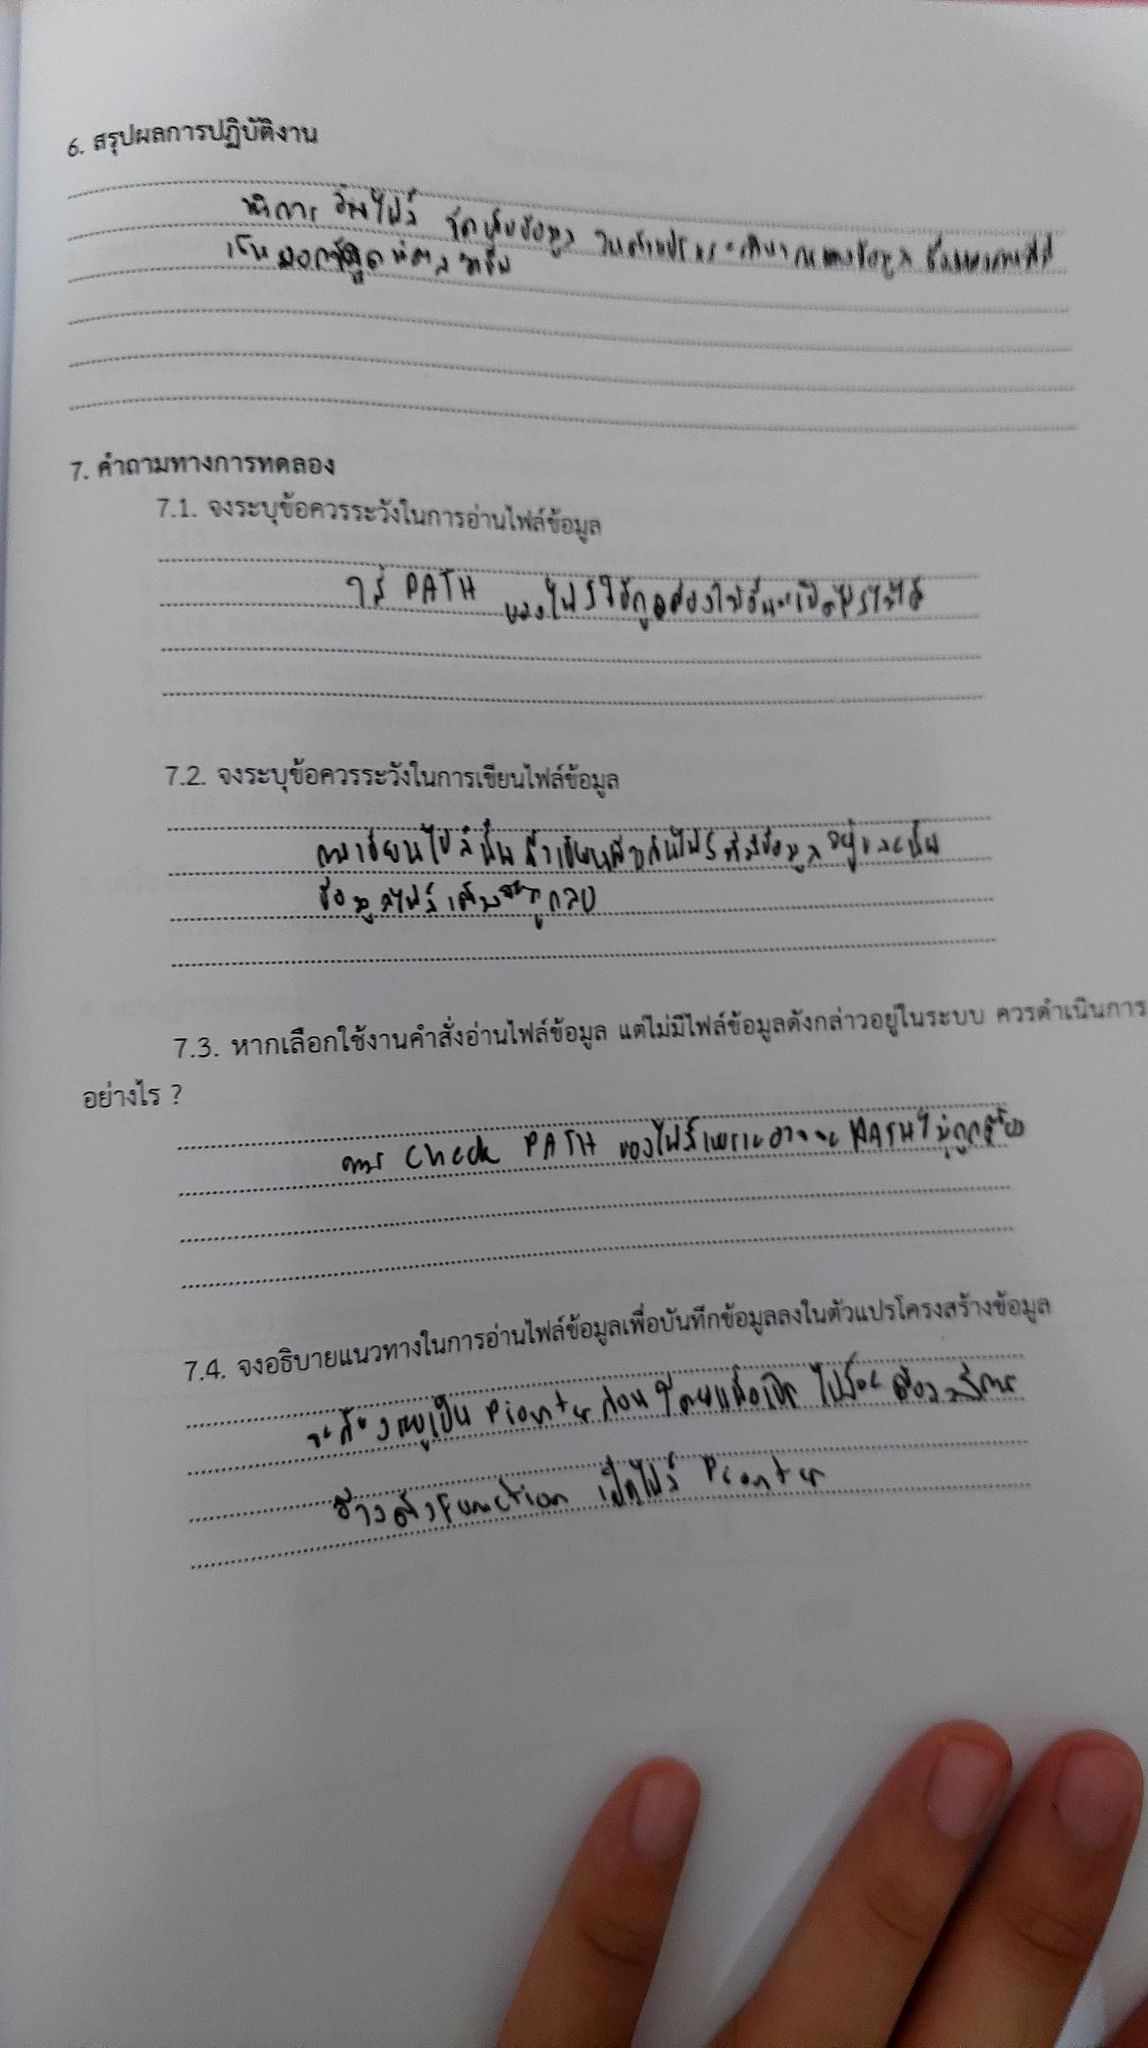 6. สรุปผลการปฏิบัติงาน
ทำการ อ่านไฟล์ จัดเก็บข้อมูล
7. คำถามทางการทดลอง
7.1. จงระบุข้อควรระวังในการอ่านไฟล์ข้อมูล
ใส่ PATH ของไฟล์ให้ถูกต้องไม่งั้นจะเปิดไฟล์ไม่ได้
7.2. จงระบุข้อควรระวังในการเขียนไฟล์ข้อมูล
การเขียนไฟล์นั้น ถ้าเขียนทับไฟล์ที่มีข้อมูลอยู่
ข้อมูลไฟล์เดิมจะถูกลบ
7.3. หากเลือกใช้งานคำสั่งอ่านไฟล์ข้อมูล แต่ไม่มีไฟล์ข้อมูลดังกล่าวอยู่ในระบบ ควรดำเนินการ
อย่างไร ?
ควร Check PATH ของไฟล์เพราะอาจจะ PATH ไม่ถูกต้อง
7.4. จงอธิบายแนวทางในการอ่านไฟล์ข้อมูลเพื่อบันทึกข้อมูลลงในตัวแปรโครงสร้างข้อมูล
จะต้องอยู่เป็น Piointer ก่อน โดยเมื่อเปิด ไฟล์จะต้องมีการ
อ้างถึง Function เปิดไฟล์ Piointer